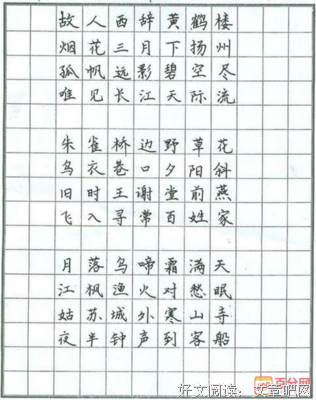 故人西辞黄鹤楼
烟花三月下扬州
孤帆远影碧空尽
唯见长江天际流
朱雀桥边野草花
乌衣巷口夕阳斜
旧时王谢堂前燕
飞入寻常百姓家
月落乌啼霜满天
江枫渔火对愁眠
姑苏城外寒山寺
夜半钟声到客船
百分网
好文阅读：文章吧网